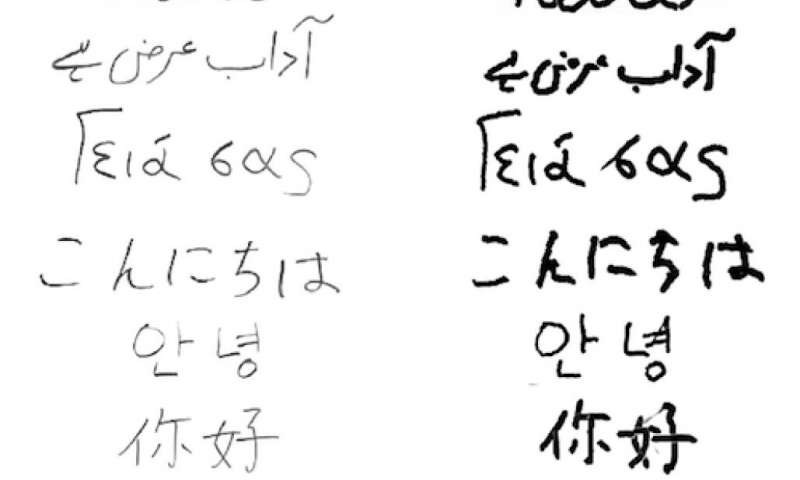 آداب عرض ہے آداب عرض ہے
Γειά σας Γειά σας
こんにちは こんにちは
안녕 안녕
你好 你好